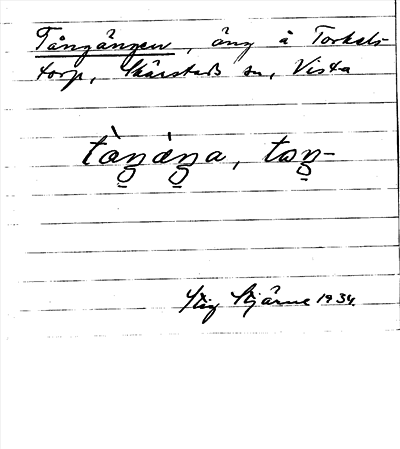 Tångängen, äng å Torkels-
torp, Skärstads sn, Vista
tàŋàŋa, taŋ-
Stig Stjärne 1934.